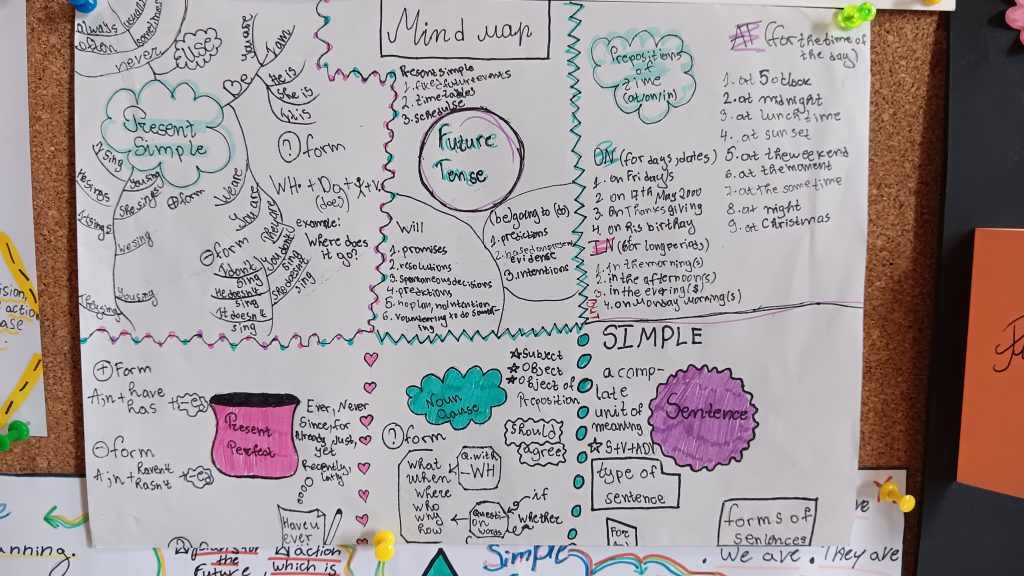 Mind map
always
often
never
USE
Be
you are
I am
He is
She is
It is
Present
Simple
I sing
He sings
It sings
You sing
She sings
We sing
You sing
They sing
⊕ form
We are
You are
They are
⊖ form
I don't
sing
He doesn't
sing
It doesn't
sing
You don't
sing
She doesn't
sing
? form
WH + Do + I + v
(does)
example:
Where does
it go?
Present simple
1. fixed future events
2. time-tables
3. schedule
Future
Tense
Will
1. promises
2. resolutions
3. spontaneous decisions
4. predictions
5. no plan, no intention
6. volunteering to do something
(be) going to (do)
1. predictions
2. based on present
evidense
3. intentions
Prepositions
of
time
(at/on/in)
AT (for the time of
the day)
1. at 5 o'clook
2. at midnight
3. at lunch time
4. at sunset
5. at the weekend
6. at the moment
7. at the same time
8. at night
9. at Christmas
ON (for days, dates)
1. on Fridays
2. on 17th May 2000
3. on Thanksgiving
4. on his birthay
IN (for long periods)
1. in the morning(s)
2. in the afternoon(s)
3. in the evening(s)
4. on Monday worning(s)
⊕ Form
A;n + have
has
⊖ form
A;n + haven't
hasn't
Present
Perfect
Ever, Never
Since, for
Already, Just,
yet
Recently,
Lately
Have u
ever
Noun
Clause
☆ Subject
☆ Object
☆ Object of
Preposition
Should
agree
? form
what
when
where
who
why
how
Q. with
- WH
Question
words
if
whether
SIMPLE
a comp-
late
unit of
meaning
☆ S+V+ADV
Sentence
type of
sentence
forms of
sentences
For
anning.
Future
action
which is
Simple
. We are . They are